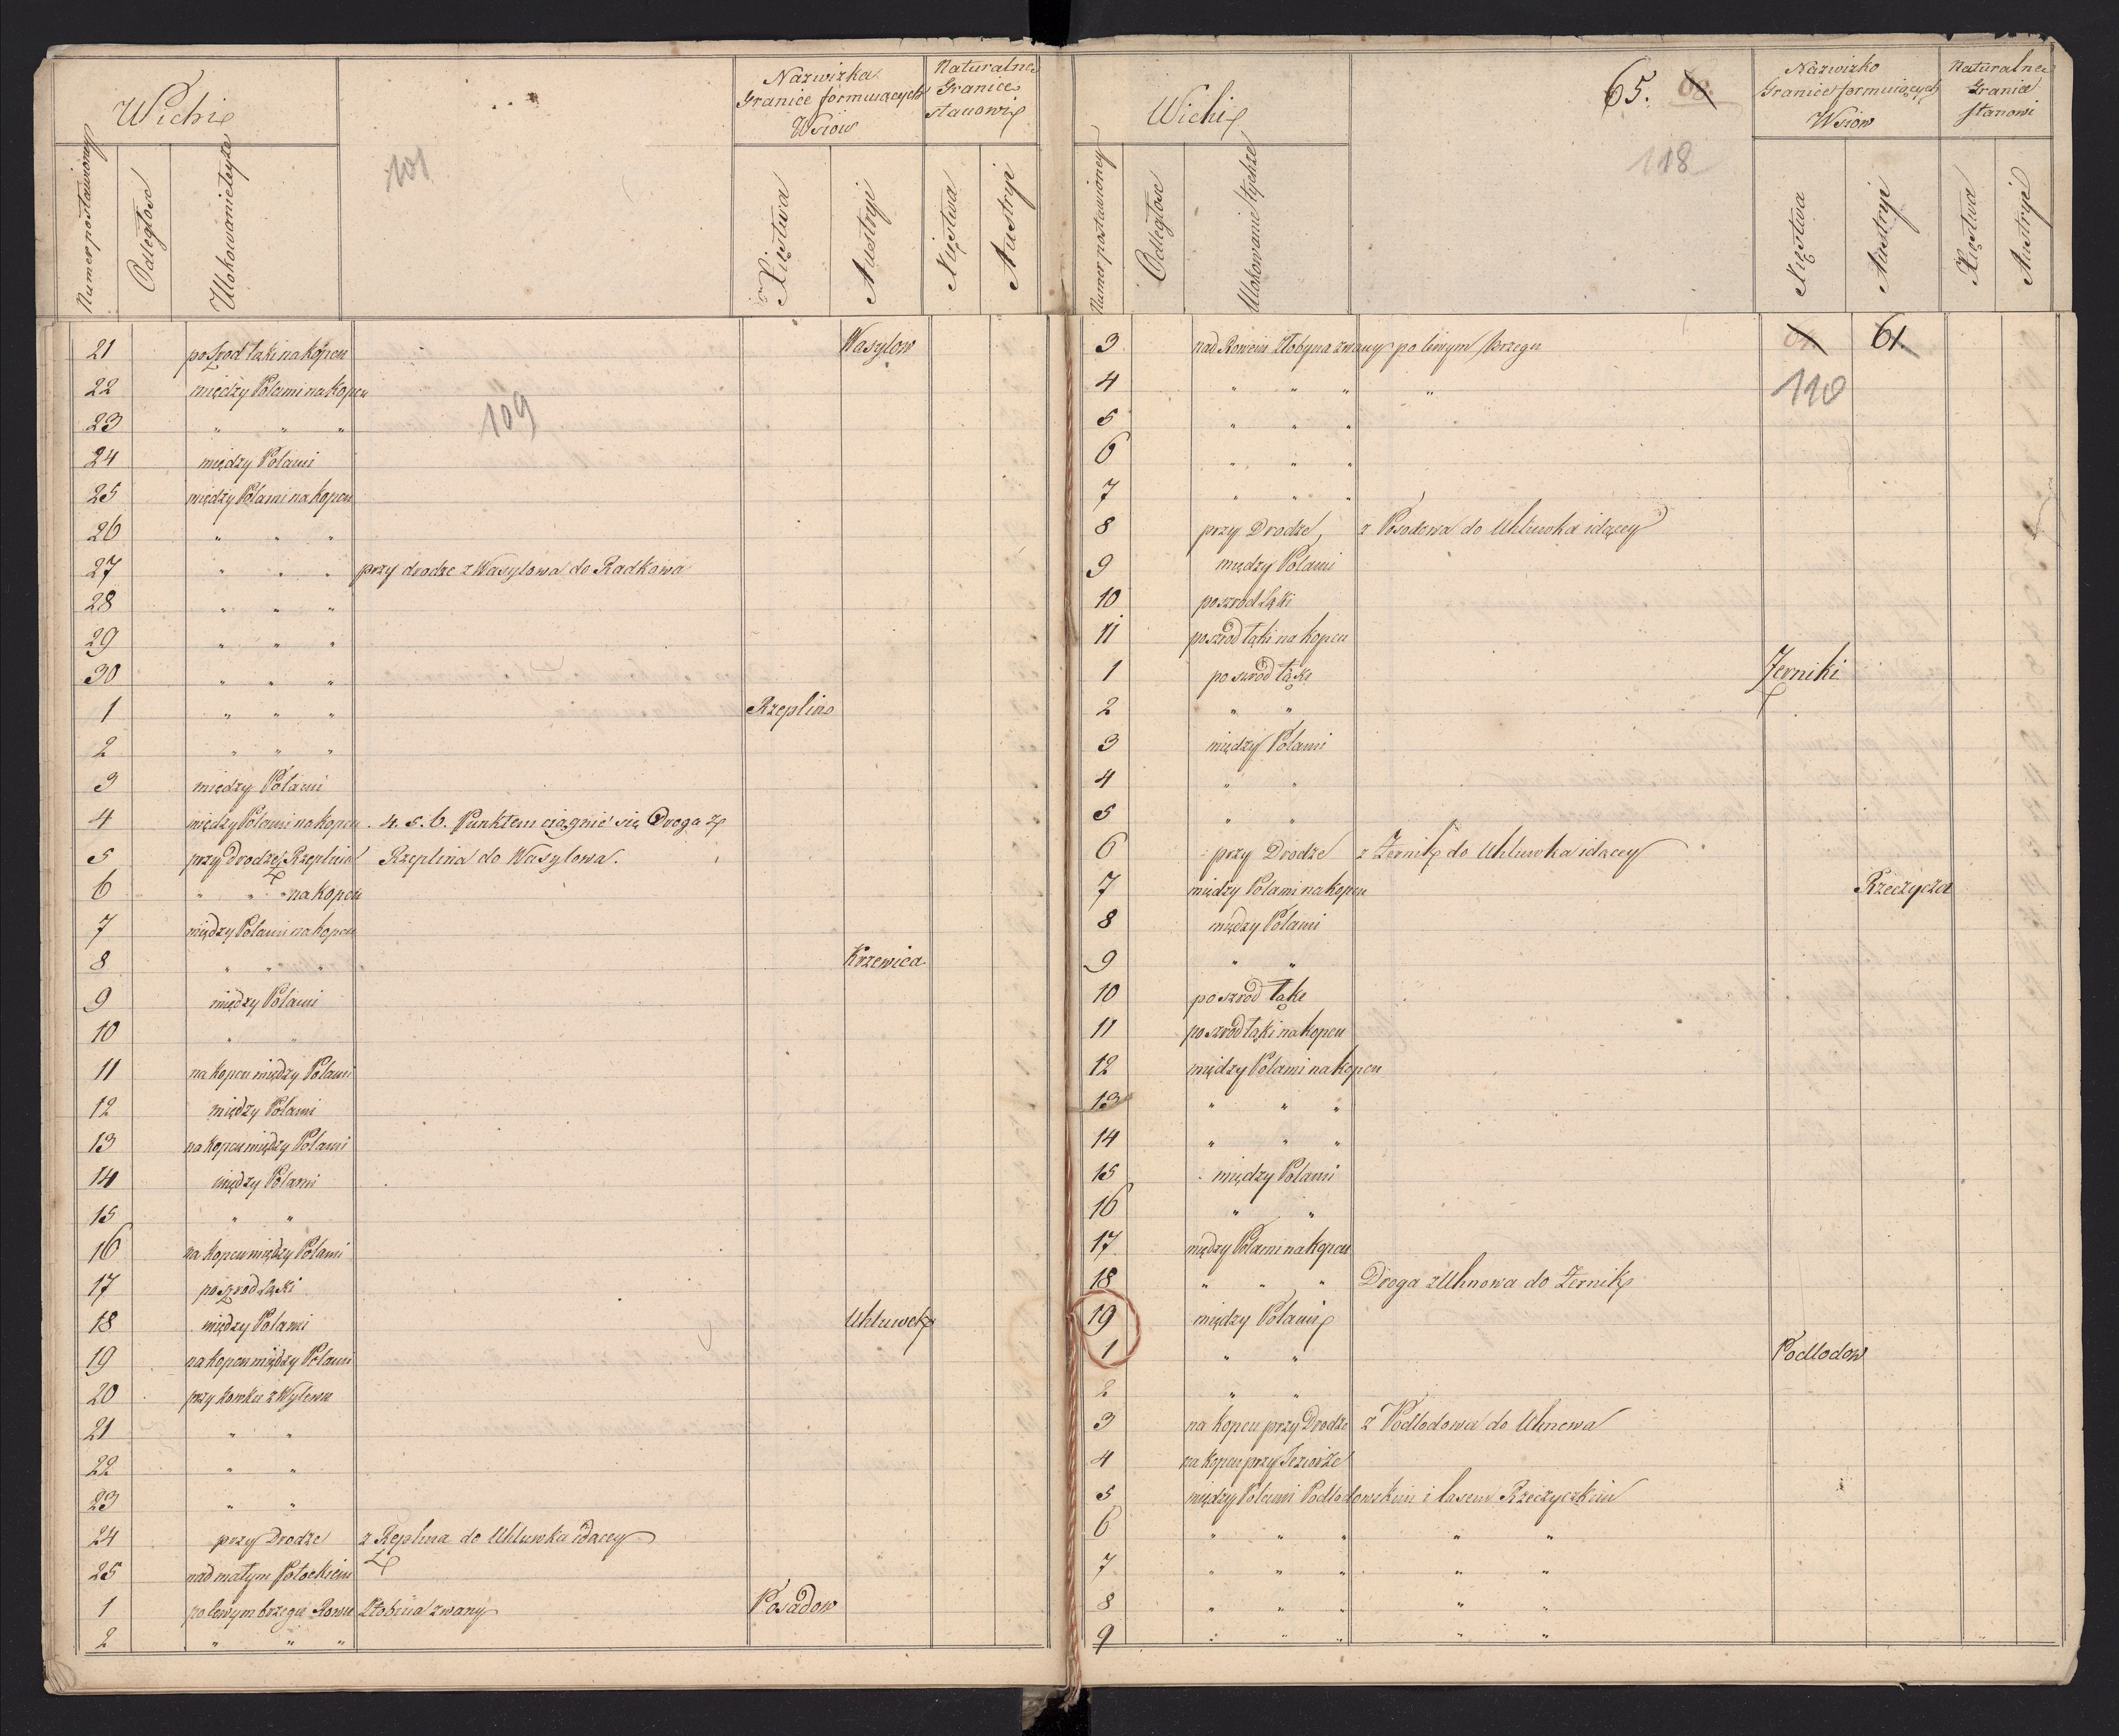 Wichi
Numer postawioney
Odległosc
Ulokowanie teyże
101
Nazwizka
Granice formuiących
Wsiow
Xięstwa
Austryi
Naturalne
Granice
stanowi
Xięstwa
Austryi
21 poszrod łaki na kopcu Wasylow
22 między Polami na kopcu
109
23 " " "
24 między Polami
25 między Polami na kopcu
26 " " "
27 " " " przy drodze z Wasylowa do Radkowa
28 " " "
29 " " "
30 " " "
1 " " " Rzeplin
2 " " "
3 między Polami
4 między Polami na kopcu . 4. 5. 6. Punktem ciągnie się Droga z
5 przy drodze z Rzeplina Rzeplina do Wasylowa.
6 " " " na kopcu
7 między Polami na kopcu
8 " " " Krzewica
9 między Polami
10 " "
11 na kopcu między Polami
12 między Polami
13 na kopcu między Polami
14 między Polami
15 " "
16 na kopcu między Polami
17 poszrod Łąki
18 między Polami Uhluwek
19 na kopcu między Polami
20 przy z Wylewu
21 " "
22 " "
23 " "
24 przy Drodze z Rzeplina do Uhluwka idacey
25 nad małym Potockiem
1 po lewym brzegu Rowu Złobina zwany Posadow
2 " " "
Wichi
65. 60.
118
Numer postawioney
Odległosc
Ulokowanie tychże
Nazwizko
Granice formuiących
Wsiow
Xięstwa
Austryi
Naturalne
Granice
stanowi
Xięstwa
Austryi
3 nad Rowem Złobyna zwany po lewym brzegu 61.
4 " " " "
110
5 " " "
6 " " "
7 " " "
8 przy Drodze, z Posodowa do Uhluwka idącey
9 między Polami
10 poszrod Łąki
11 poszrod łąki na kopcu
1 poszrod łąki Zerniki
2 " "
3 między Polami
4 " "
5 " "
6 przy Drodze z Zernik do Uhluwka idącey
7 między Polami na kopcu Rzeczyca
8 między Polami
9 " "
10 poszrod łąke
11 poszrod łąki na kopcu
12 między Polami na kopcu
13 " " "
14 " " "
15 między Polami
16 " "
17 między Polami na kopcu
18 " " " Droga z Uhnowa do Zernik
19 między Polami
1 " " Podlodow
2 " "
3 na kopcu przy Drodze z Podlodowa do Uhnowa
4 na kopcu przy Jeziorze
5 między Polami Podlodowskim i lasem Rzeczyckim
6 " " " " "
7 " " " " "
8 " " " " "
9 " " " " "